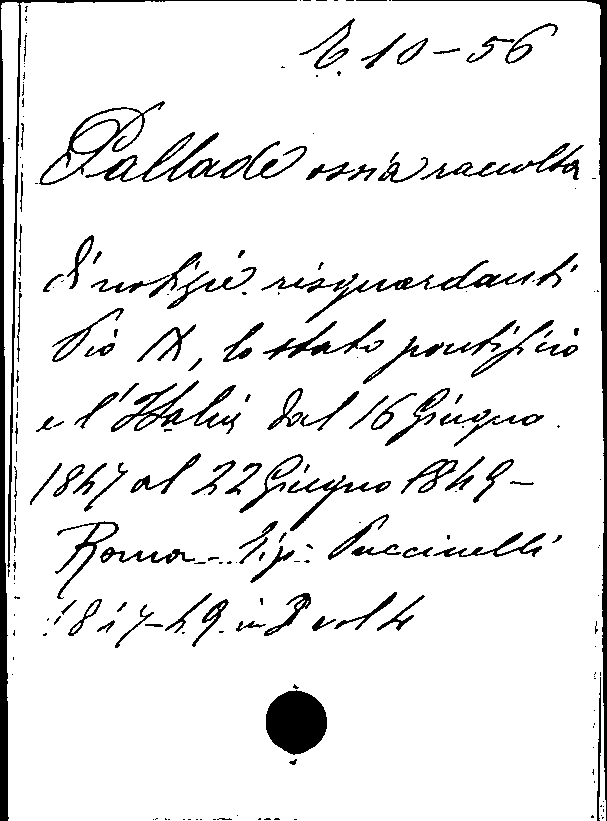 10-56
Pallade ossia raccolta
di notizie risguardanti
Pio IX, lo stato pontificio
e l'Italia dal 16 Giugno
1847 al 22 Giugno 1849 -
Roma - Tip: Puccinelli
1847-49. in vol 4